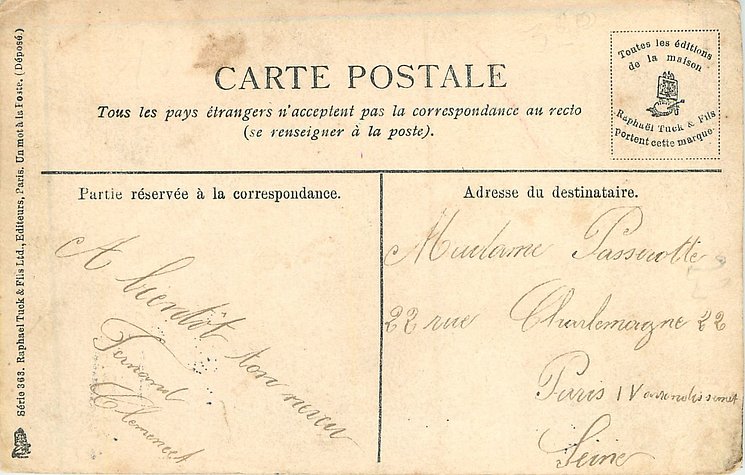 CARTE POSTALE
Tous les pays étrangers n'acceptent pas la correspondance au recto
(se renseigner à la poste).
Toutes les éditions
de la maison
Raphaël Tuck & Fils
portent cette marque
Série 363. Raphael Tuck & Fils Ltd., Editeurs, Paris. Un mot à la Poste. (Déposé.)
Partie réservée à la correspondance.
A bientôt ton neveu
Fernand
Clemencet
Adresse du destinataire.
Madame Passerotte
22 rue Charlemagne 22
Paris IV arrondissemet
Seine